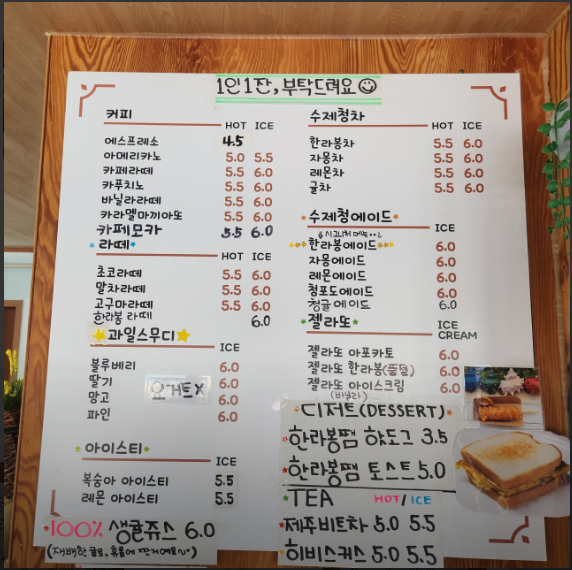 1인1잔, 부탁드려요
커피
HOT ICE
에스프레소 4.5
아메리카노 5.0 5.5
카페라떼 5.5 6.0
카푸치노 5.5 6.0
바닐라라떼 5.5 6.0
카라멜마끼아또 5.5 6.0
카페모카 5.5 6.0
라떼
HOT ICE
초코라떼 5.5 6.0
말차라떼 5.5 6.0
고구마라떼 5.5 6.0
한라봉 라떼 6.0
과일스무디
ICE
블루베리 6.0
딸기 6.0
망고 6.0
파인 6.0
요거트X
아이스티
ICE
복숭아 아이스티 5.5
레몬 아이스티 5.5
100% 생귤쥬스 6.0
수제청차
HOT ICE
한라봉차 5.5 6.0
자몽차 5.5 6.0
레몬차 5.5 6.0
귤차 5.5 6.0
수제청에이드
ICE
한라봉에이드 6.0
자몽에이드 6.0
레몬에이드 6.0
청포도에이드 6.0
청귤에이드 6.0
젤라또
ICE CREAM
젤라또 아포카토 6.0
젤라또 한라봉 6.0
젤라또 아이스크림 6.0
(바닐라)
디저트(DESSERT)
한라봉쨈 핫도그 3.5
한라봉쨈 토스트 5.0
TEA HOT/ICE
제주비트차 5.0 5.5
히비스커스 5.0 5.5